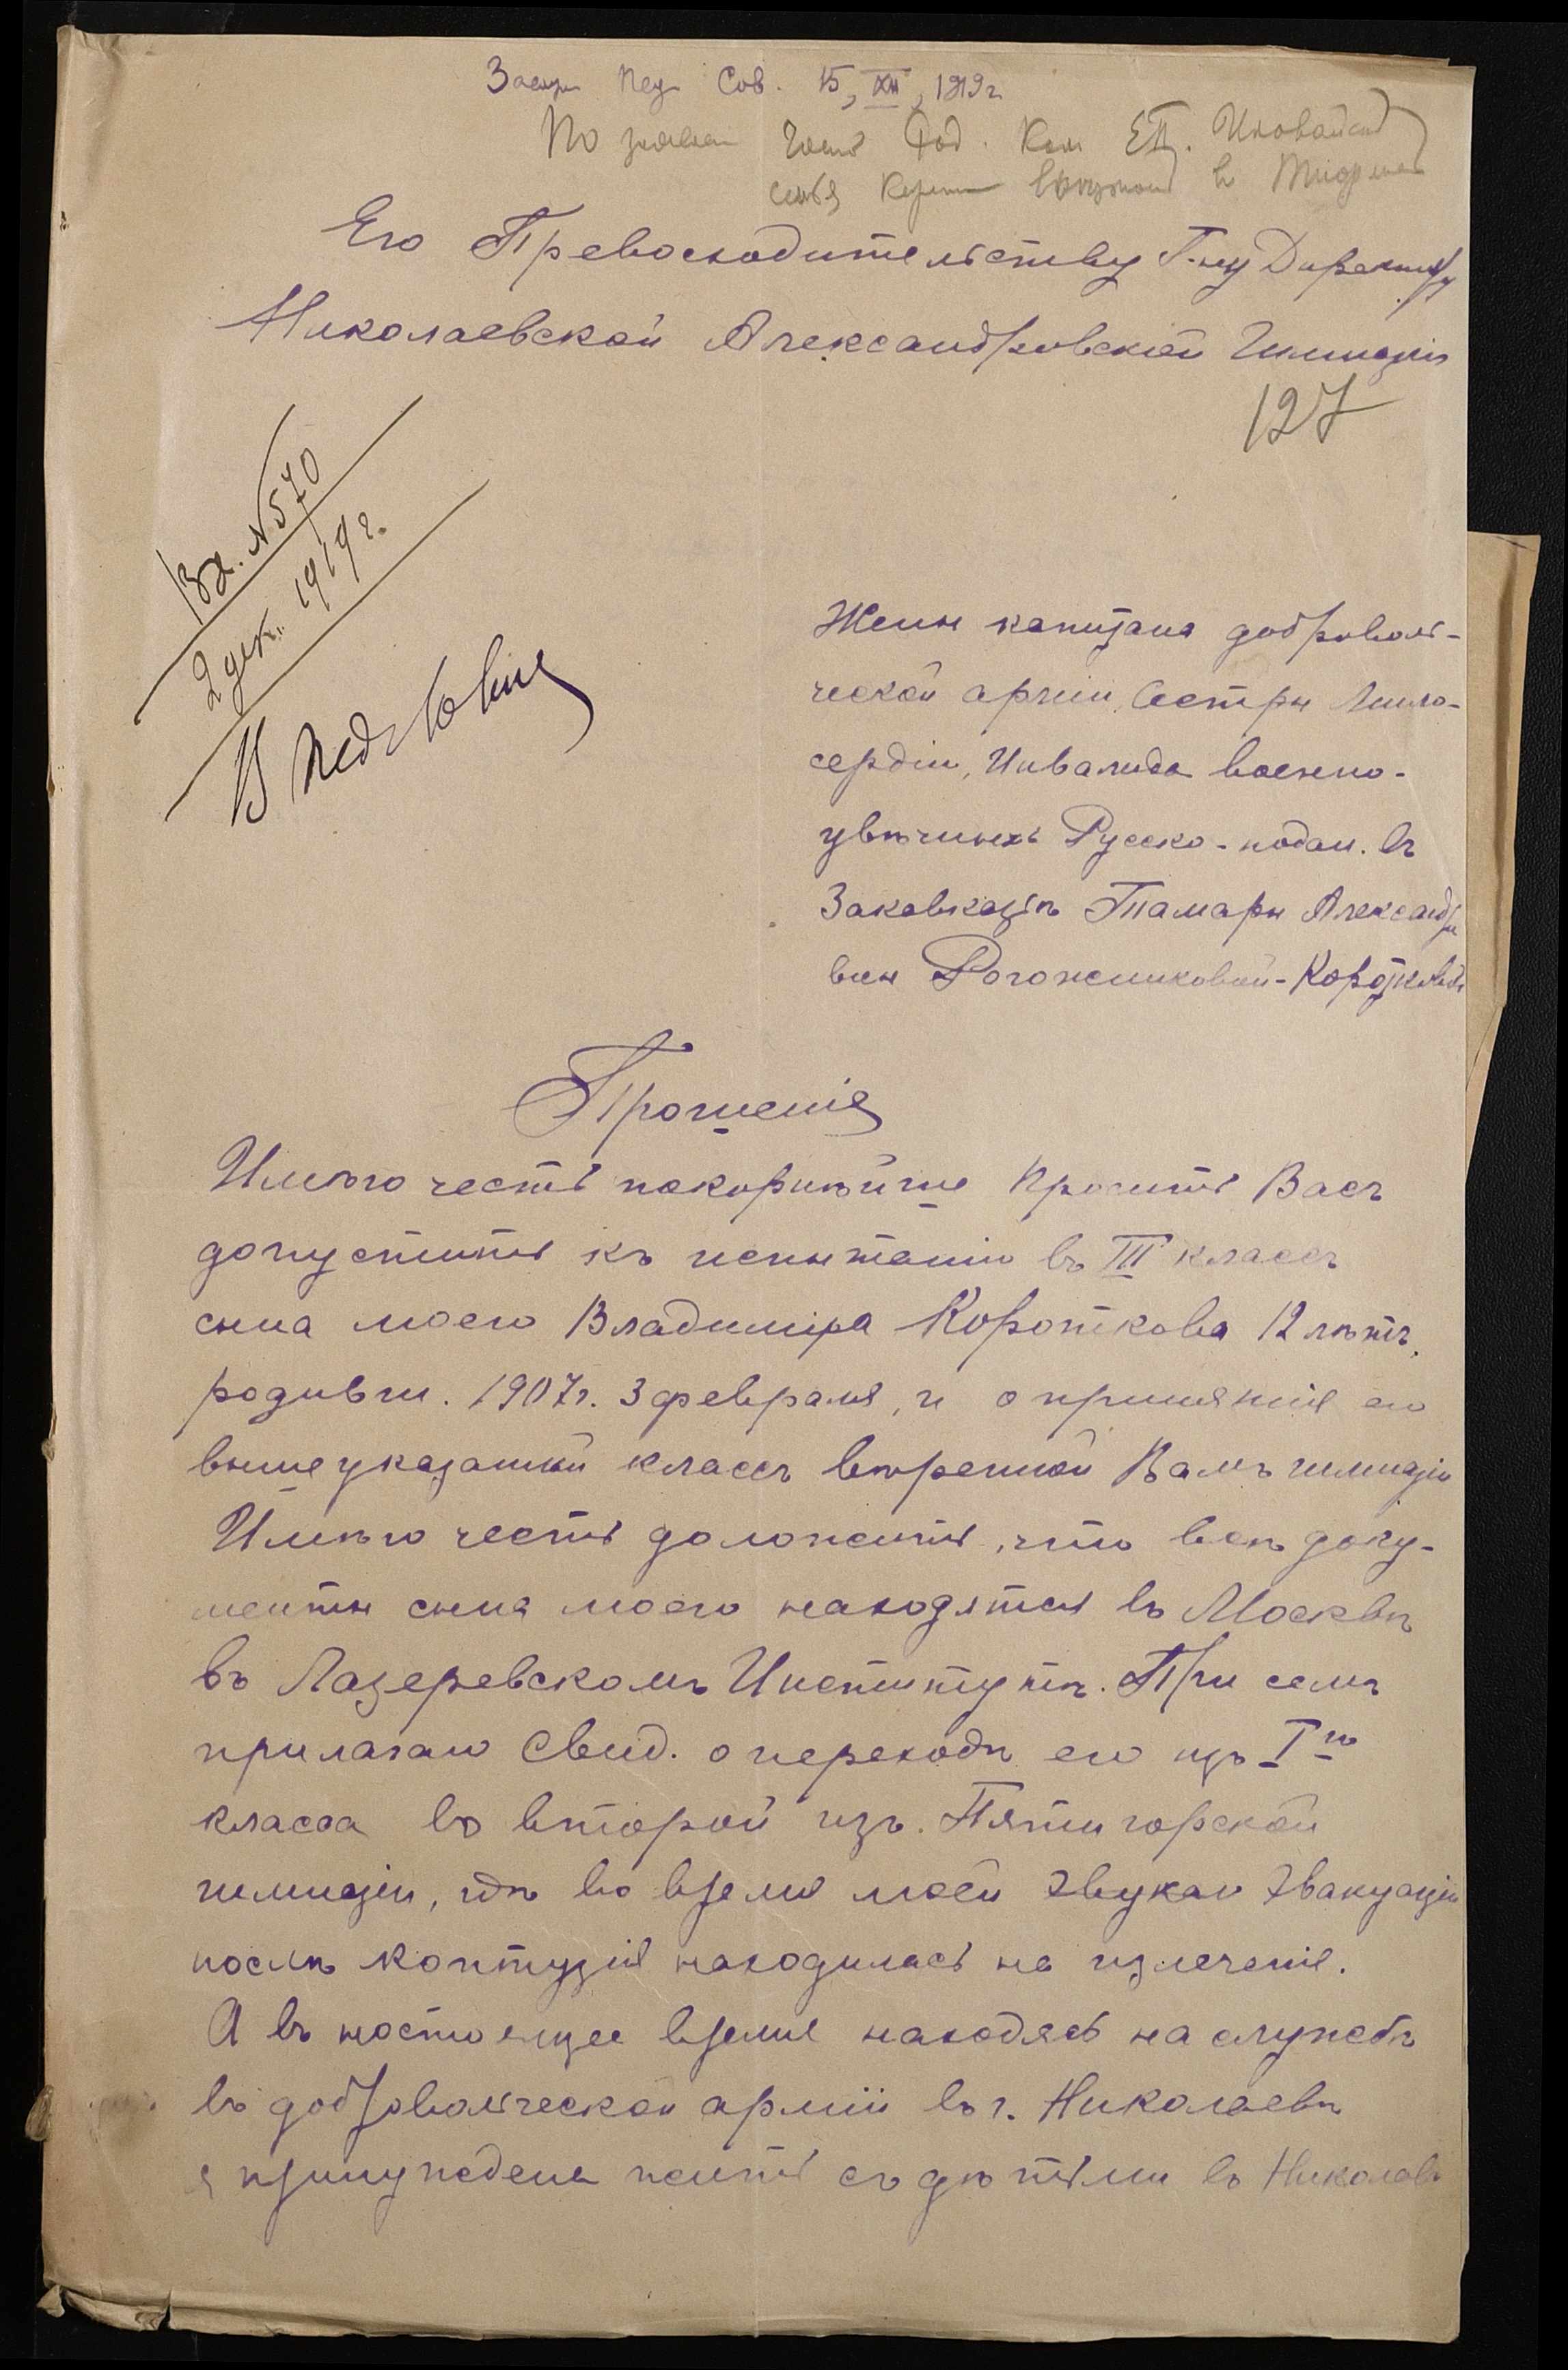 Засѣд. Пед. Сов. 15, XII, 1919 г.
По Род. Ком. Е.П. Иловайск
семья в
Его Превосходительству Г-ну Директору
Николаевской Александровской Гимназіи
127
Вх. № 570
2 дек. 1919 г.
В Пед. Совѣт
Жены капитана доброволь-
ческой арміи, Сестры Мило-
сердія, Инвалида военно-
увѣчныхъ Русско-подан. въ
Закавказіи Тамары Александро
вны Рогожниковой-Коротковой
Прошеніе
Имѣю честь покорнѣйше просить Васъ
допустить къ испытанію въ III классъ
сына моего Владиміра Короткова 12 лѣтъ,
родивш. 1907 г. 3 февраля, и о принятіе его
вышеуказанный классъ ввѣренной Вамъ гимназіи
Имѣю честь доложить, что всѣ доку-
менты сына моего находятся въ Москвѣ
въ Лазеревскомъ Институтѣ. При семъ
прилагаю Свид. о переходѣ его изъ I го
класса во второй изъ. Пятигорской
гимназіи, гдѣ во время моей эвукац эвакуаціи
послѣ контузіи находилась на излеченіе.
А въ настоящее время находясь на службѣ
въ добровольческой арміи въ г. Николаевѣ
я принуждена жить съ дѣтьми въ Николаев